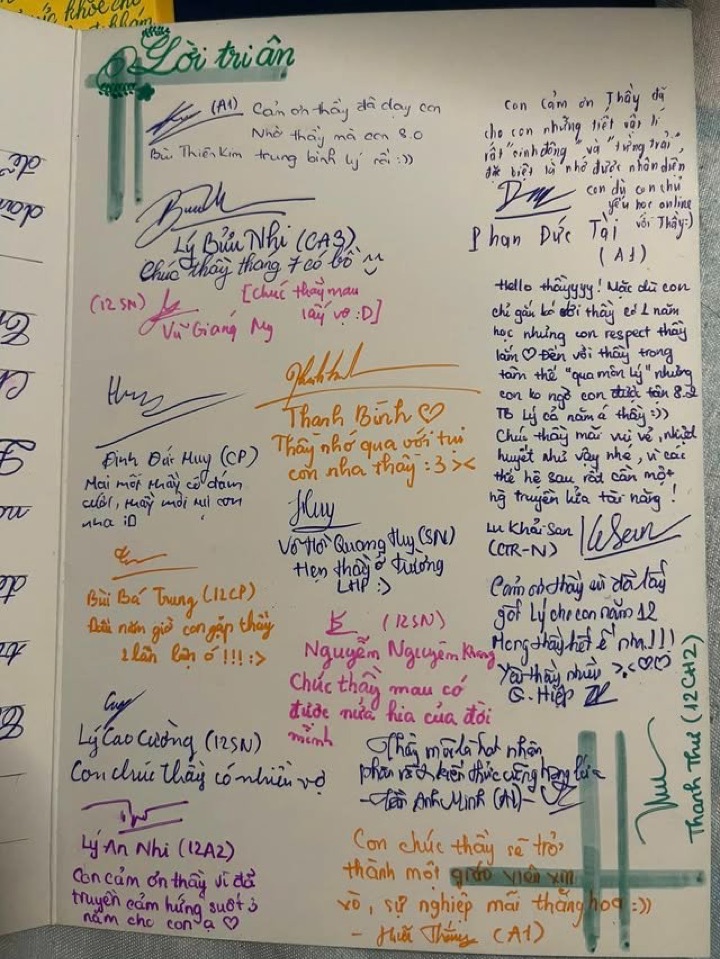 Lời tri ân
(A1) Cảm ơn thầy đã dạy con
Nhờ thầy mà con 8.0
Bùi Thiên Kim trung bình lý rồi :))
Con cảm ơn Thầy đã
cho con những tiết vật lí
rất "sinh động" và "từng trải",
đặc biệt là nhớ được nhân diện
con dù con chủ
yếu học online
với Thầy:)
Phan Đức Tài
(A1)
Lý Bửu Nhi (CA3)
Chúc thầy tháng 7 có bồ
(12SN)
Vũ Giáng My
[Chúc thầy mau
lấy vợ :D]
Hello thầyyyy! Mặc dù con
chỉ gắn bó với thầy có 1 năm
học nhưng con respect thầy
lắm ♡ Đến với thầy trong
tâm thế "qua môn lý" nhưng
con ko ngờ con được tận 8.2
TB Lý cả năm á thầy :))
Chúc thầy mãi vui vẻ, nhiệt
huyết như vậy nhé, vì các
thế hệ sau rất cần một
ng truyền lửa tài năng!
Lu Khải San
(CTR-N)
Huy
Đinh Đức Huy (CP)
Mai mốt thầy có đám
cưới, thầy mời tụi con
nha :D
Thanh Bình ♡
Thầy nhớ qua với tụi
con nha thầy :3 ><
Huy
Võ Hồ Quang Huy (SN)
Hẹn thầy ở trường
LHP :)
Bùi Bá Trung (12CP)
Đầu năm giờ con gặp thầy
2 lần lận ó!!! :>
(12SN)
Nguyễn Nguyên Khang
Chúc thầy mau có
được nửa kia của đời
mình
Cảm ơn thầy vì đã lấy
gốc Lý cho con năm 12
Mong thầy hết ế nha!!!
Yêu thầy nhiều >.< ♡♡
G. Hiệp
Thanh Thư (12CH2)
Lý Cao Cường (12SN)
Con chúc thầy có nhiều vợ
Thầy mãi là hạt nhân
phân rã kiến thức
Anh Minh (A1)
Lý An Nhi (12A2)
Con cảm ơn thầy vì đã
truyền cảm hứng suốt 3
năm cho con ạ ♡
Con chúc thầy sẽ trở
thành một giáo viên xịn
xò, sự nghiệp mãi thăng hoa :))
(A1)